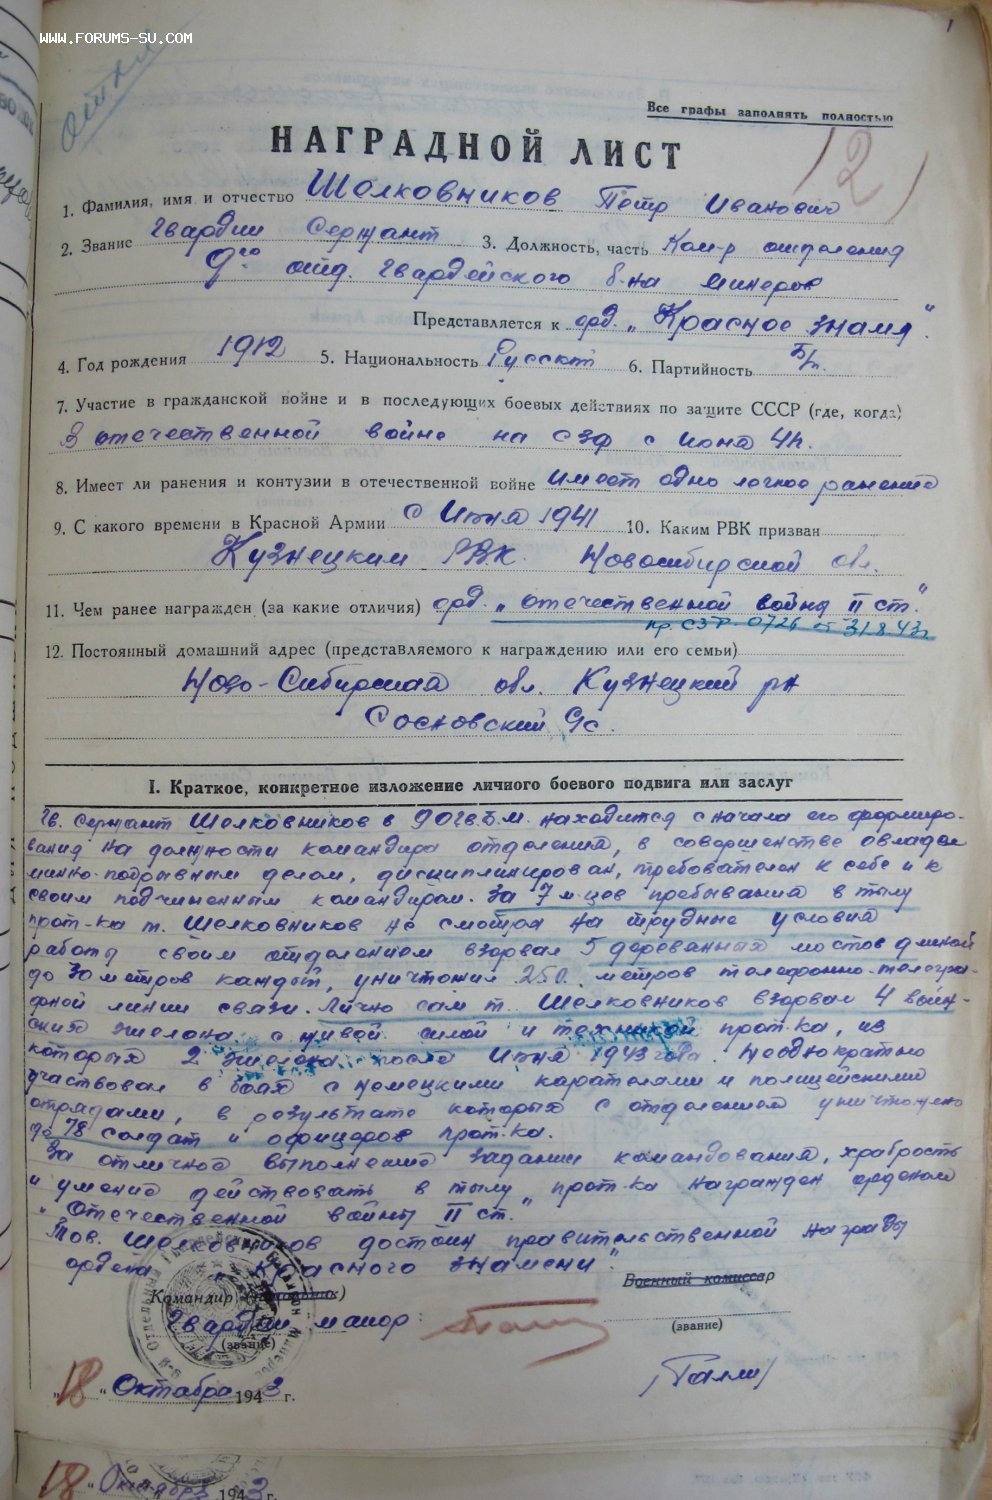 WWW.FORUMS-SU.COM
1
Все графы заполнять полностью
12
НАГРАДНОЙ ЛИСТ
1. Фамилия, имя и отчество Шелковников Петр Иванович
2. Звание Гвардии Сержант 3. Должность, часть Ком-р отделения
9го отд. Гвардейского б-на минеров
Представляется к орд. „Красное знамя".
4. Год рождения 1912 5. Национальность Русский 6. Партийность Б/п.
7. Участие в гражданской войне и в последующих боевых действиях по защите СССР (где, когда)
В отечественной войне на СЗФ с Июня 41г.
8. Имеет ли ранения и контузии в отечественной войне имеет одно легкое ранение
9. С какого времени в Красной Армии с Июня 1941 10. Каким РВК призван
Кузнецким РВК. Новосибирской обл.
11. Чем ранее награжден (за какие отличия) орд. „Отечественной войны II ст."
пр. СЗФ 0726 от 31.8.43г
12. Постоянный домашний адрес (представляемого к награждению или его семьи)
Ново-Сибирская обл. Кузнецкий рн
Сосновский с/с.
I. Краткое, конкретное изложение личного боевого подвига или заслуг
Гв. Сержант Шелковников в 9 ОГв.Б.М. находится с начала его формиро-
вания на должности командира отделения, в совершенстве овладел
минно-подрывным делом, дисциплинирован, требователен к себе и к
своим подчиненным командирам. За 7 м-цев пребывания в тылу
прот-ка т. Шелковников не смотря на трудные условия
работы своим отделением взорвал 5 деревянных мостов длиной
до 30 метров каждый, уничтожил 250 метров телефонно-телегра-
фной линии связи. Лично сам т. Шелковников взорвал 4 воин-
ских эшелона с живой силой и техникой прот-ка, из
которых 2 эшелона после Июня 1943 года. Неоднократно
участвовал в боях с немецкими карателями и полицейскими
отрядами, в результате которых с отделением уничтожено
до 78 солдат и офицеров прот-ка.
За отличное выполнение задании командования, храбрость
и умение действовать в тылу прот-ка награжден орденом
„Отечественной войны II ст."
Тов. Шелковников достоин правительственной награды
ордена „Красного знамени".
Военный комиссар
Командир (начальник)
Гвардии маиор:
(звание)
(звание)
„18" Октября 1943 г.
18 „Октября 1943 г.